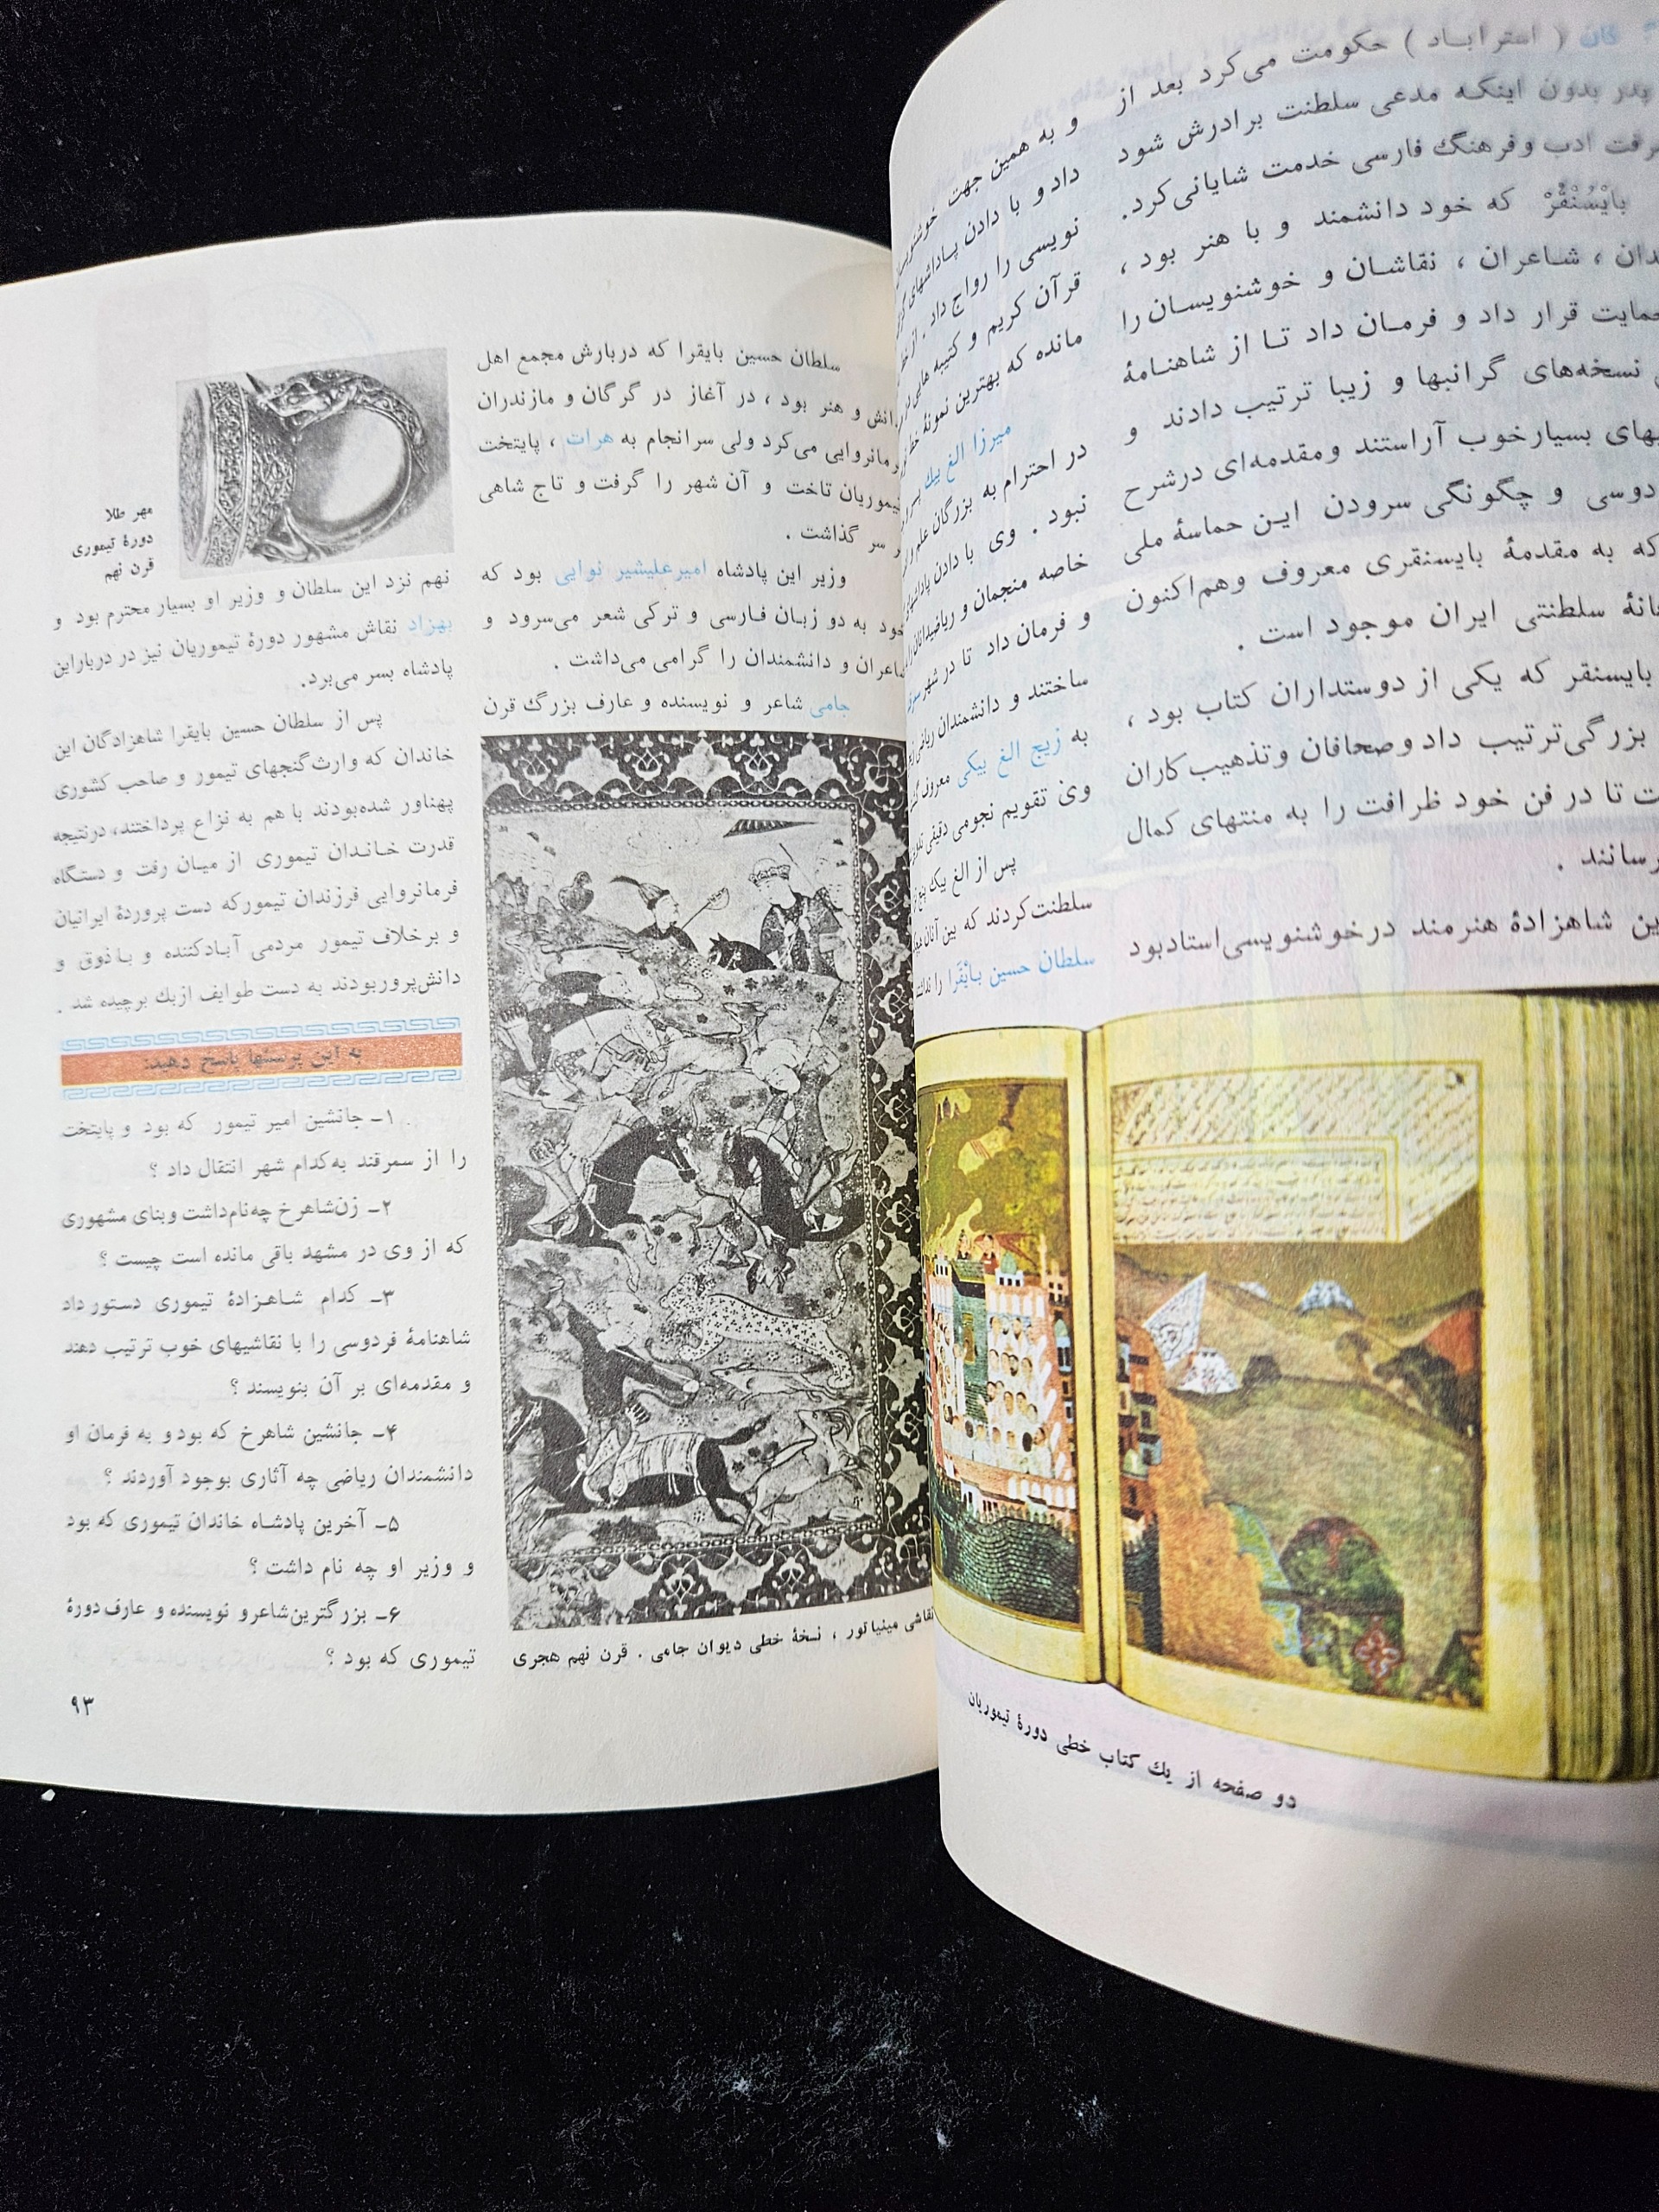 گان ( استرابـاد ) حکومت می‌کرد بعد از
پدر بدون اینکـه مدعی سلطنت برادرش شود
ادب وفرهنگ فارسی خدمت شایانی‌کرد.
بایْسُنْقُرْ که خود دانشمند و با هنر بود ،
شـاعران ، نقاشـان و خوشنویسـان را
حمایت قرار داد و فرمـان داد تـا از شاهنامهٔ
نسخه‌های گرانبها و زیبا ترتیب دادند و
بسیارخوب آراستند ومقدمه‌ای درشرح
و چگونگی سرودن ایـن حماسهٔ ملی
که به مقدمهٔ بایسنقری معروف وهم‌اکنون
سلطنتی ایران موجود است .
بایسنقر که یکی از دوستداران کتاب بود ،
بزرگی‌ترتیب داد وصحافان وتذهیب‌کاران
تا در فن خود ظرافت را به منتهای کمال
شاهزادهٔ هنرمند درخوشنویسی‌استادبود
و به همین جهت
داد و با دادن پـاداشهای
نویسی را رواج داد .
قرآن کریم و کتیبه هایی
مانده که بهترین نمونهٔ
میرزا الغ بیك
در احترام به بزرگان علم
نبود . وی با دادن
خاصه منجمان و ریاضیدانان
و فرمان داد تا در شهر
ساختند و دانشمندان ریاضی
به زیج الغ بیکی معروف
وی تقویم نجومی دقیقی
پس از الغ بیك
سلطنت‌کردند که بین آنان
سلطان حسین بایْقَرا را
دو صفحه از یك کتاب خطی دورهٔ تیموریان
سلطان حسین بایقرا که دربارش مجمع اهل
و هنر بود ، در آغاز در گرگان و مازندران
می‌کرد ولی سرانجام به هرات ، پایتخت
تیموریان تاخت و آن شهر را گرفت و تاج شاهی
سر گذاشت .
وزیر این پادشاه امیرعلیشیر نوایی بود که
خود به دو زبـان فـارسی و ترکی شعر می‌سرود و
شاعران و دانشمندان را گرامی می‌داشت .
جامی شاعر و نویسنده و عارف بزرگ قرن
نقاشی مینیاتور ، نسخهٔ خطی دیوان جامی . قرن نهم هجری
مهر طلا
دورهٔ تیموری
قرن نهم
نهم نزد این سلطان و وزیر او بسیار محترم بود و
بهزاد نقاش مشهور دورهٔ تیموریان نیز در درباراین
پادشاه بسر می‌برد.
پس از سلطان حسین بایقرا شاهزادگان این
خاندان که وارث‌گنجهای تیمور و صاحب کشوری
پهناور شده‌بودند با هم به نزاع پرداختند، درنتیجه
قدرت خـانـدان تیموری از میـان رفت و دستگـاه
فرمانروایی فرزندان تیمورکه دست پروردهٔ ایرانیان
و برخلاف تیمور مردمی آبـادکننده و بـا ذوق و
دانش‌پروربودند به دست طوایف ازبك برچیده شد .
به این پرسشها پاسخ دهید:
۱ـ جانشین امیر تیمور که بود و پایتخت
را از سمرقند به‌کدام شهر انتقال داد ؟
۲ـ زن‌شاهرخ چه‌نام‌داشت وبنای مشهوری
که از وی در مشهد باقی مانده است چیست ؟
۳ـ کدام شـاهـزادهٔ تیموری دستور داد
شاهنامهٔ فردوسی را با نقاشیهای خوب ترتیب دهند
و مقدمه‌ای بر آن بنویسند ؟
۴ـ جانشین شاهرخ که بود و به فرمان او
دانشمندان ریاضی چه آثاری بوجود آوردند ؟
۵ـ آخرین پادشـاه خاندان تیموری که بود
و وزیر او چه نام داشت ؟
۶ـ بزرگترین‌شاعرو نویسنده و عارف دورهٔ
تیموری که بود ؟
۹۳